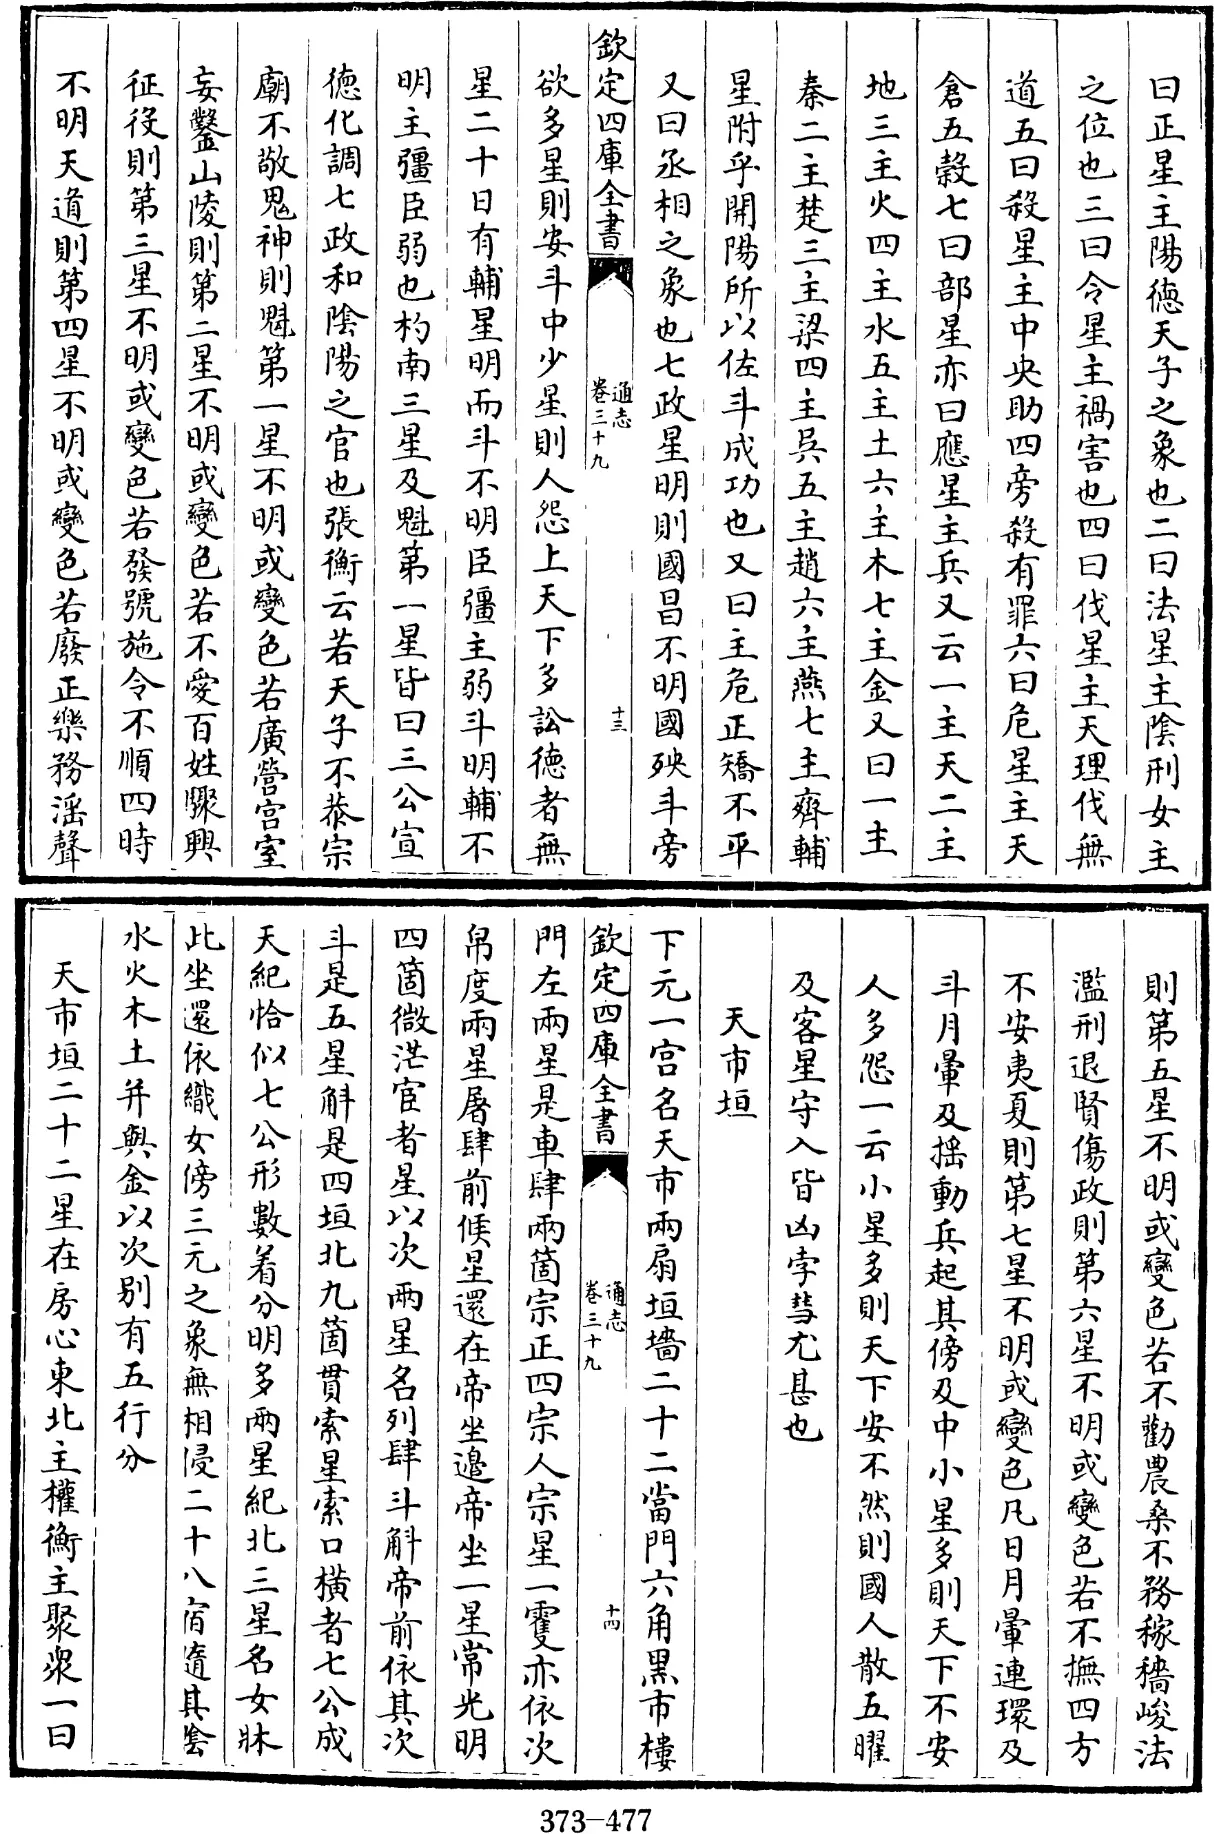 曰正星主陽德天子之象也二曰法星主陰刑女主
之位也三曰令星主禍害也四曰伐星主天理伐無
道五曰殺星主中央助四旁殺有罪六曰危星主天
倉五穀七曰部星亦曰應星主兵又云一主天二主
地三主火四主水五主土六主木七主金又曰一主
秦二主楚三主梁四主吳五主趙六主燕七主齊輔
星附乎開陽所以佐斗成功也又曰主危正矯不平
又曰丞相之象也七政星明則國昌不明國殃斗旁
欽定四庫全書
通志
卷三十九
十三
欲多星則安斗中少星則人怨上天下多訟德者無
星二十日有輔星明而斗不明臣彊主弱斗明輔不
明主彊臣弱也杓南三星及魁第一星皆曰三公宣
德化調七政和陰陽之官也張衡云若天子不恭宗
廟不敬鬼神則魁第一星不明或變色若廣營宮室
妄鑿山陵則第二星不明或變色若不愛百姓驟興
征役則第三星不明或變色若發號施令不順四時
不明天道則第四星不明或變色若廢正樂務淫聲
則第五星不明或變色若不勸農桑不務稼穡峻法
濫刑退賢傷政則第六星不明或變色若不撫四方
不安夷夏則第七星不明或變色凡日月暈連環及
斗月暈及搖動兵起其傍及中小星多則天下不安
人多怨一云小星多則天下安不然則國人散五曜
及客星守入皆凶孛彗尤甚也
天市垣
下元一宮名天市兩扇垣墻二十二當門六角黑市樓
欽定四庫全書
通志
卷三十九
十四
門左兩星是車肆兩箇宗正四宗人宗星一䨇亦依次
帛度兩星屠肆前候星還在帝坐邊帝坐一星常光明
四箇微茫宦者星以次兩星名列肆斗斛帝前依其次
斗是五星斛是四垣北九箇貫索星索口橫者七公成
天紀恰似七公形數着分明多兩星紀北三星名女牀
此坐還依織女傍三元之象無相侵二十八宿隨其陰
水火木土并與金以次別有五行分
天市垣二十二星在房心東北主權衡主聚衆一曰
373-477